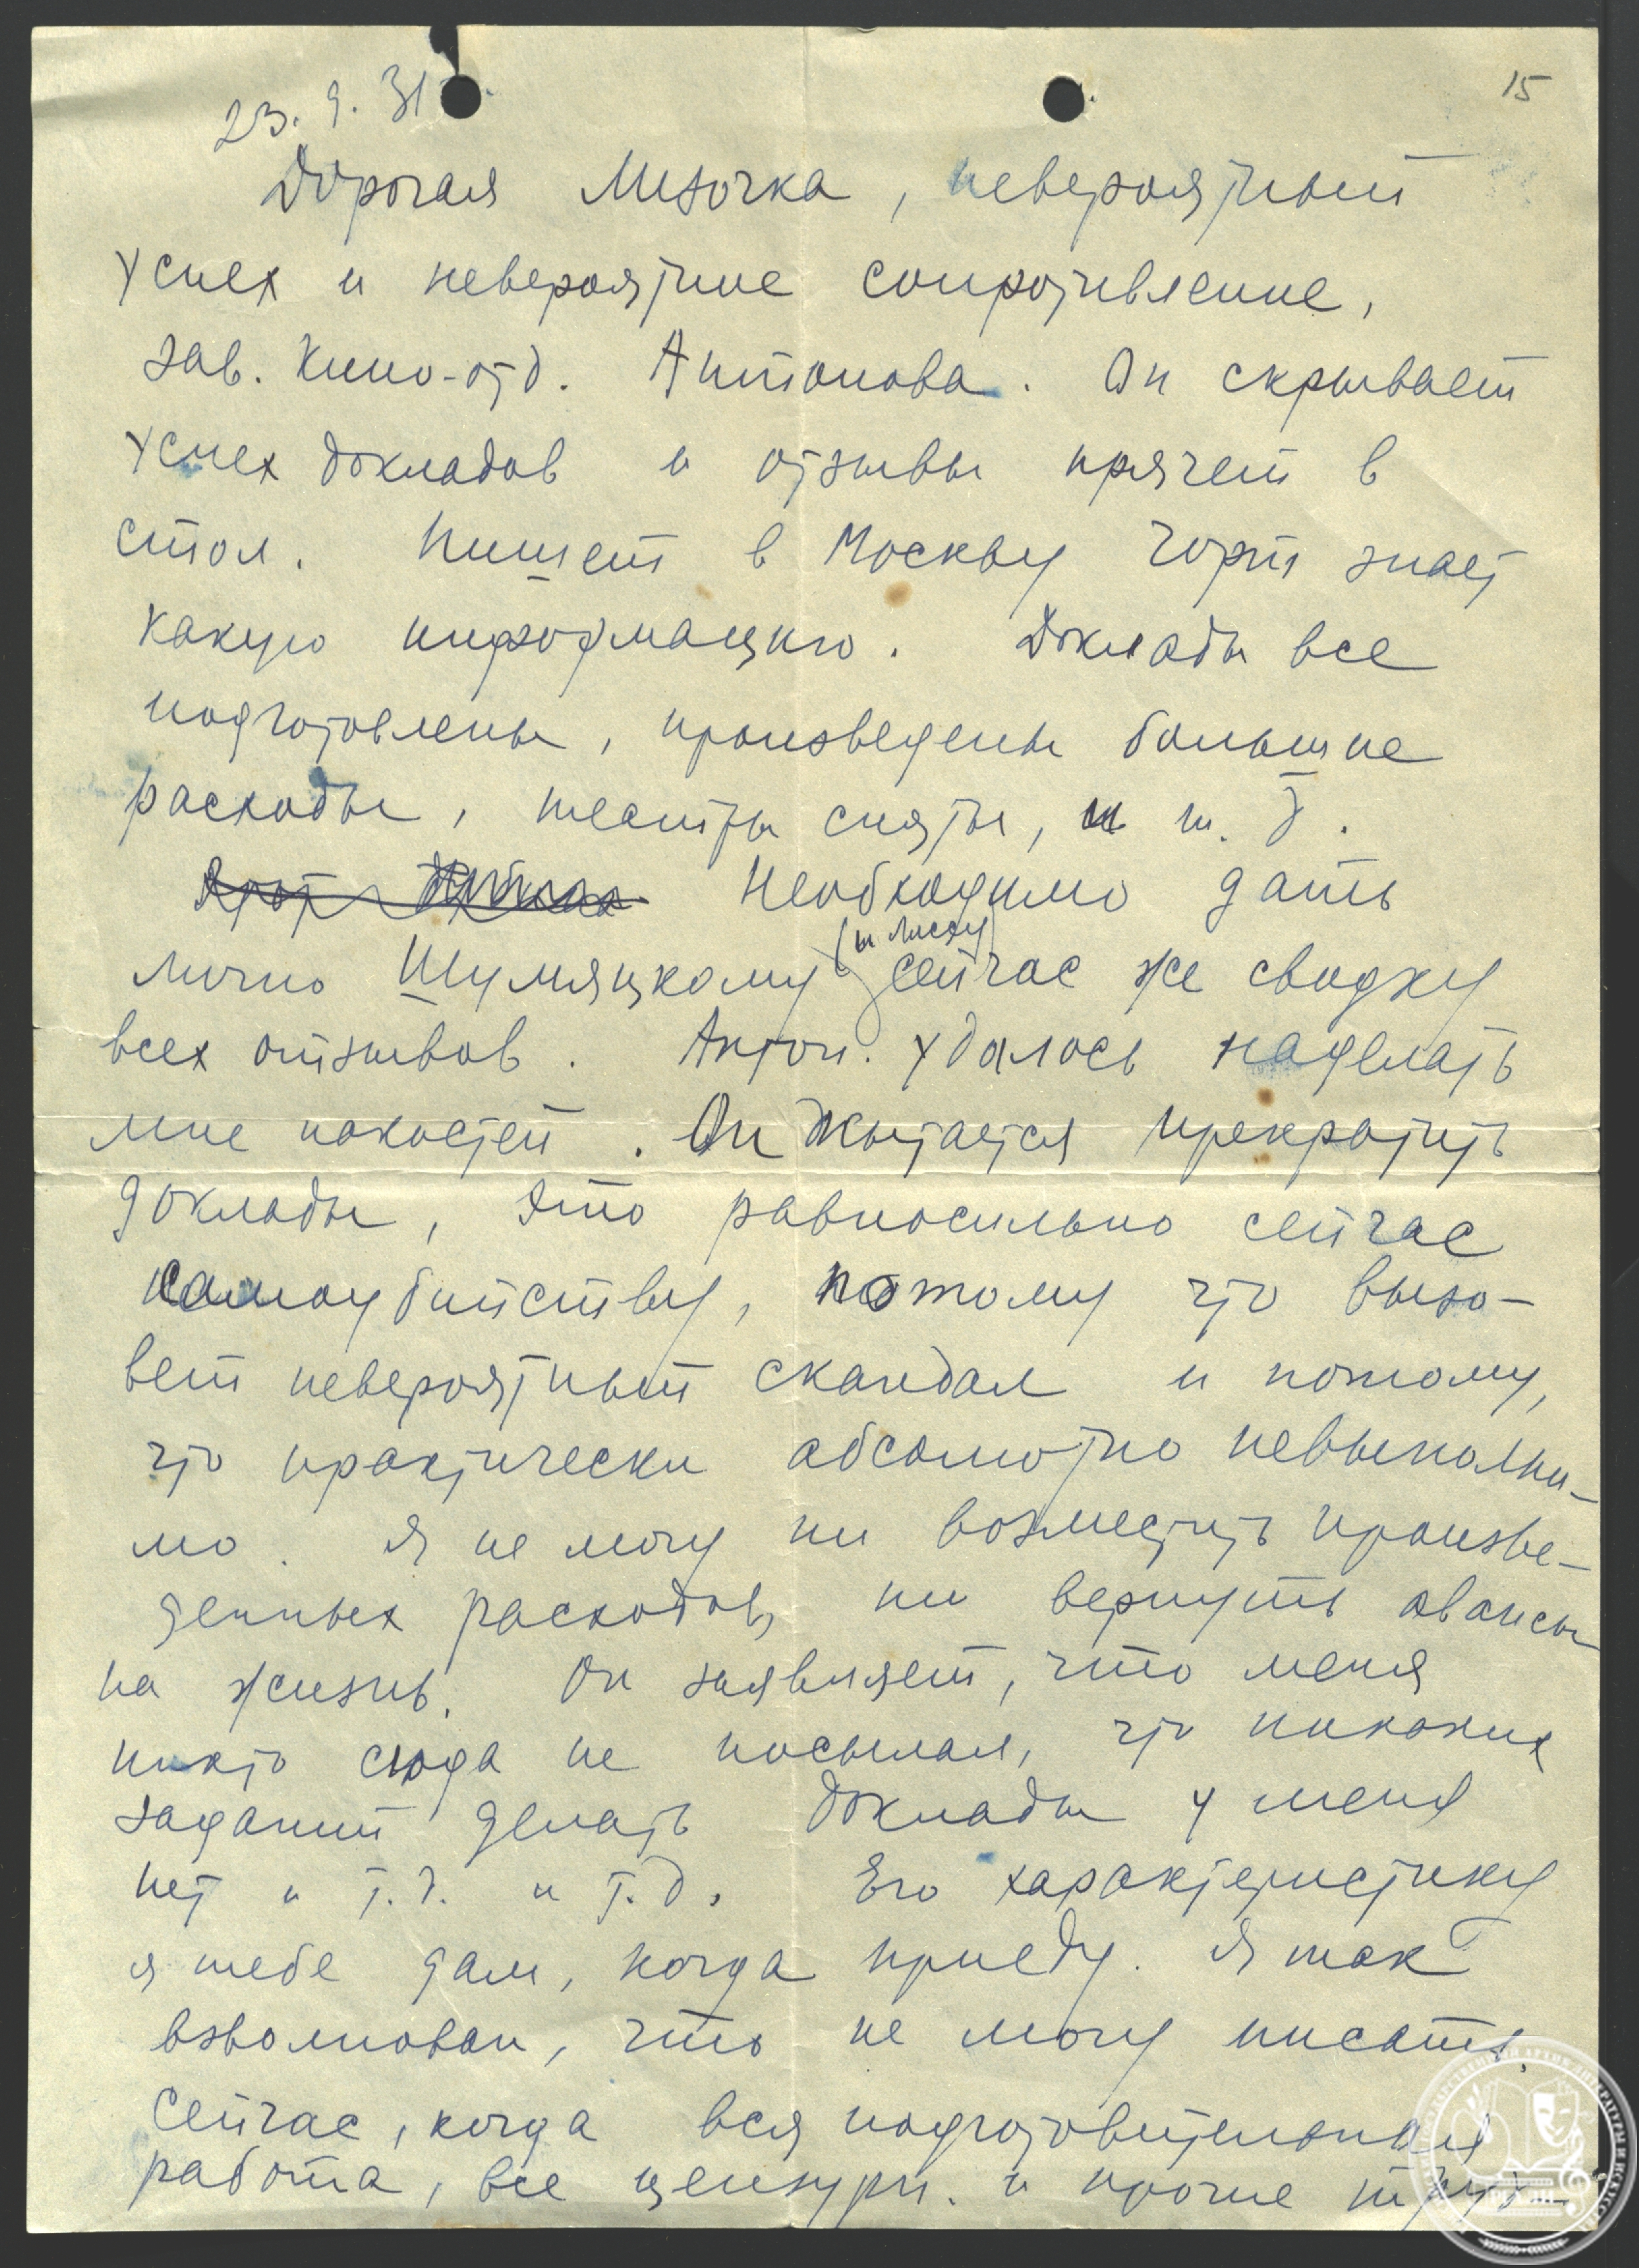 15
23. 9. 31
Дорогая Лизочка, невероятный
успех и невероятное сопротивление,
зав. Кино-отд. Антонова. Он скрывает
успех докладов и отзывы прячет в
стол. Пишет в Москву чорт знает
какую информацию. Доклады все
подготовлены, произведены большие
расходы, театры сняты, и т. д.
Необходимо дать
(и Листу)
лично Шумяцкому сейчас же сводку
всех отзывов. Антон. удалось наделать
мне пакостей. Он пытается прекратить
доклады, это равносильно сейчас
самоубийству, потому что вызо-
вет невероятный скандал и потому,
что практически абсолютно невыполни-
мо. Я не могу ни возместить произве-
денных расходов, ни вернуть авансы
на жизнь. Он заявляет, что меня
никто сюда не посылал, что никаких
заданий делать доклады у меня
нет и т.д. и т.д. Его характеристику
я тебе дам, когда приеду. Я так
взволнован, что не могу писать.
Сейчас, когда вся подготовительная
работа, все цензурн. и прочие